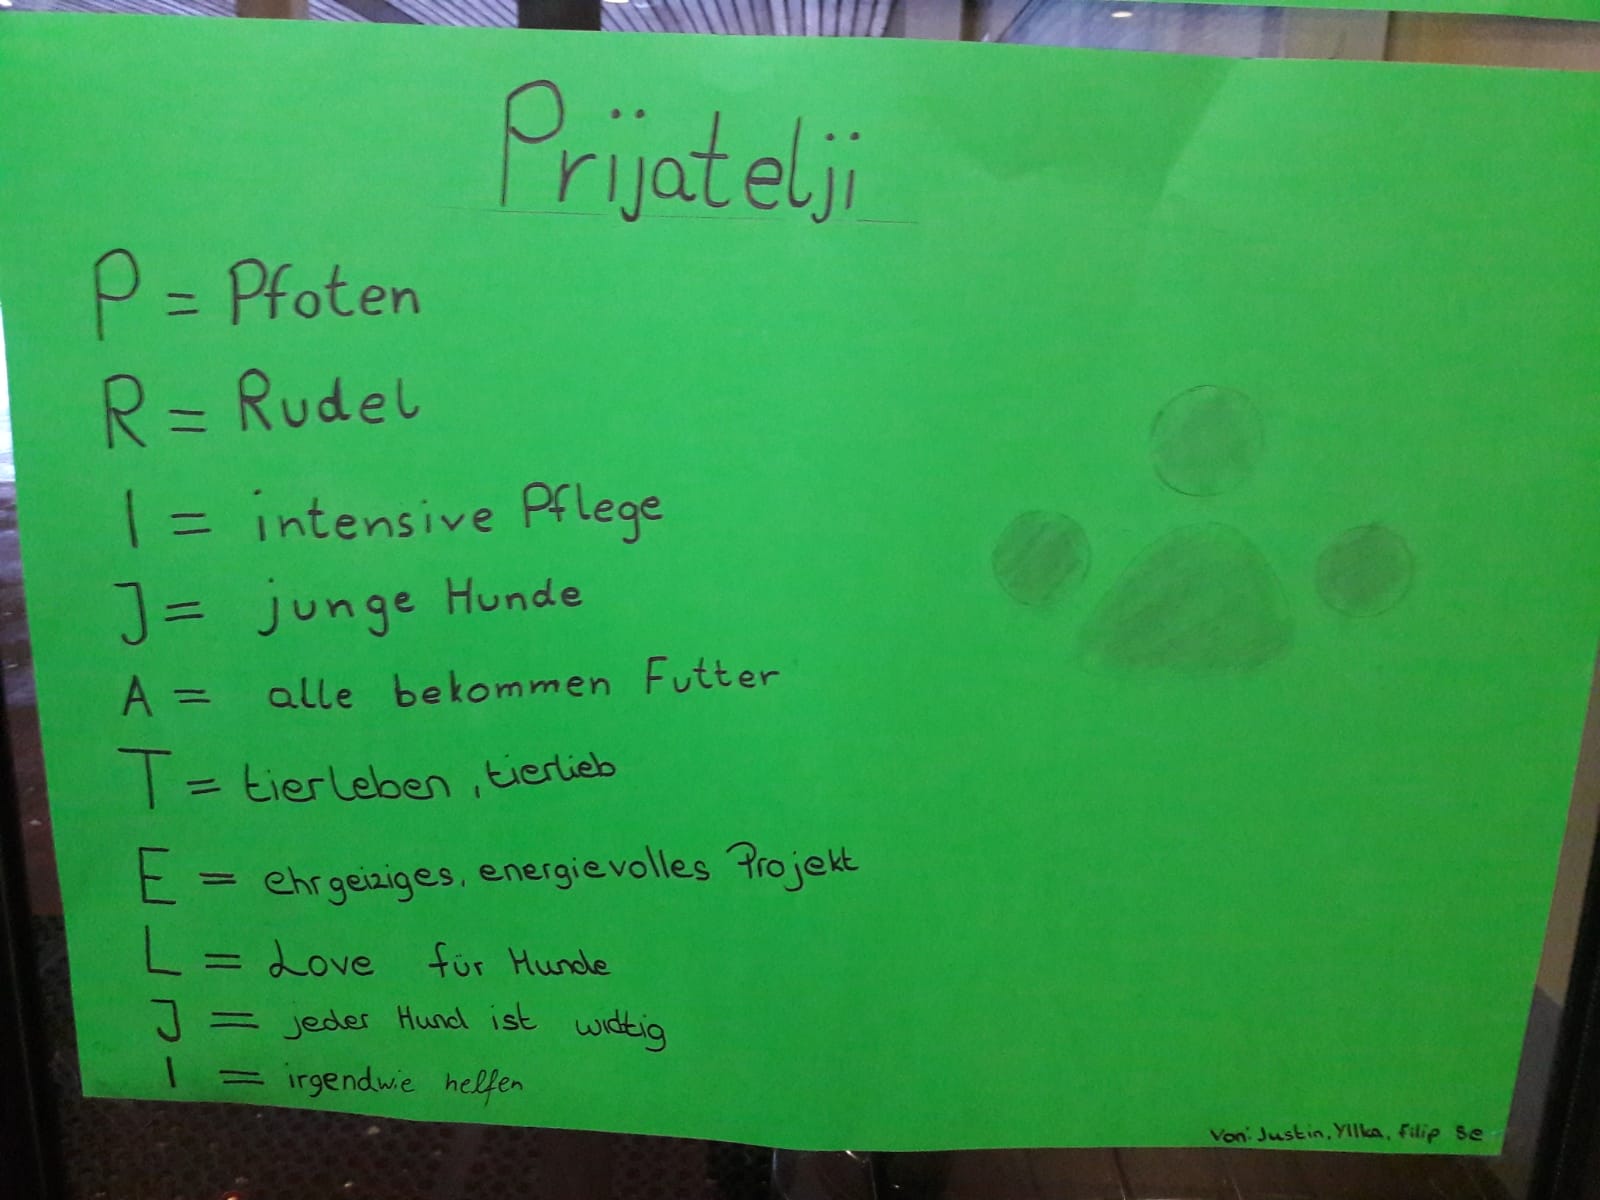 Prijatelji
P = Pfoten
R = Rudel
I = intensive Pflege
J = junge Hunde
A = alle bekommen Futter
T = tierleben, tierlieb
E = ehrgeiziges, energievolles Projekt
L = Love für Hunde
J = jeder Hund ist wichtig
I = irgendwie helfen
Von: Justin, Yllka, Filip 8e